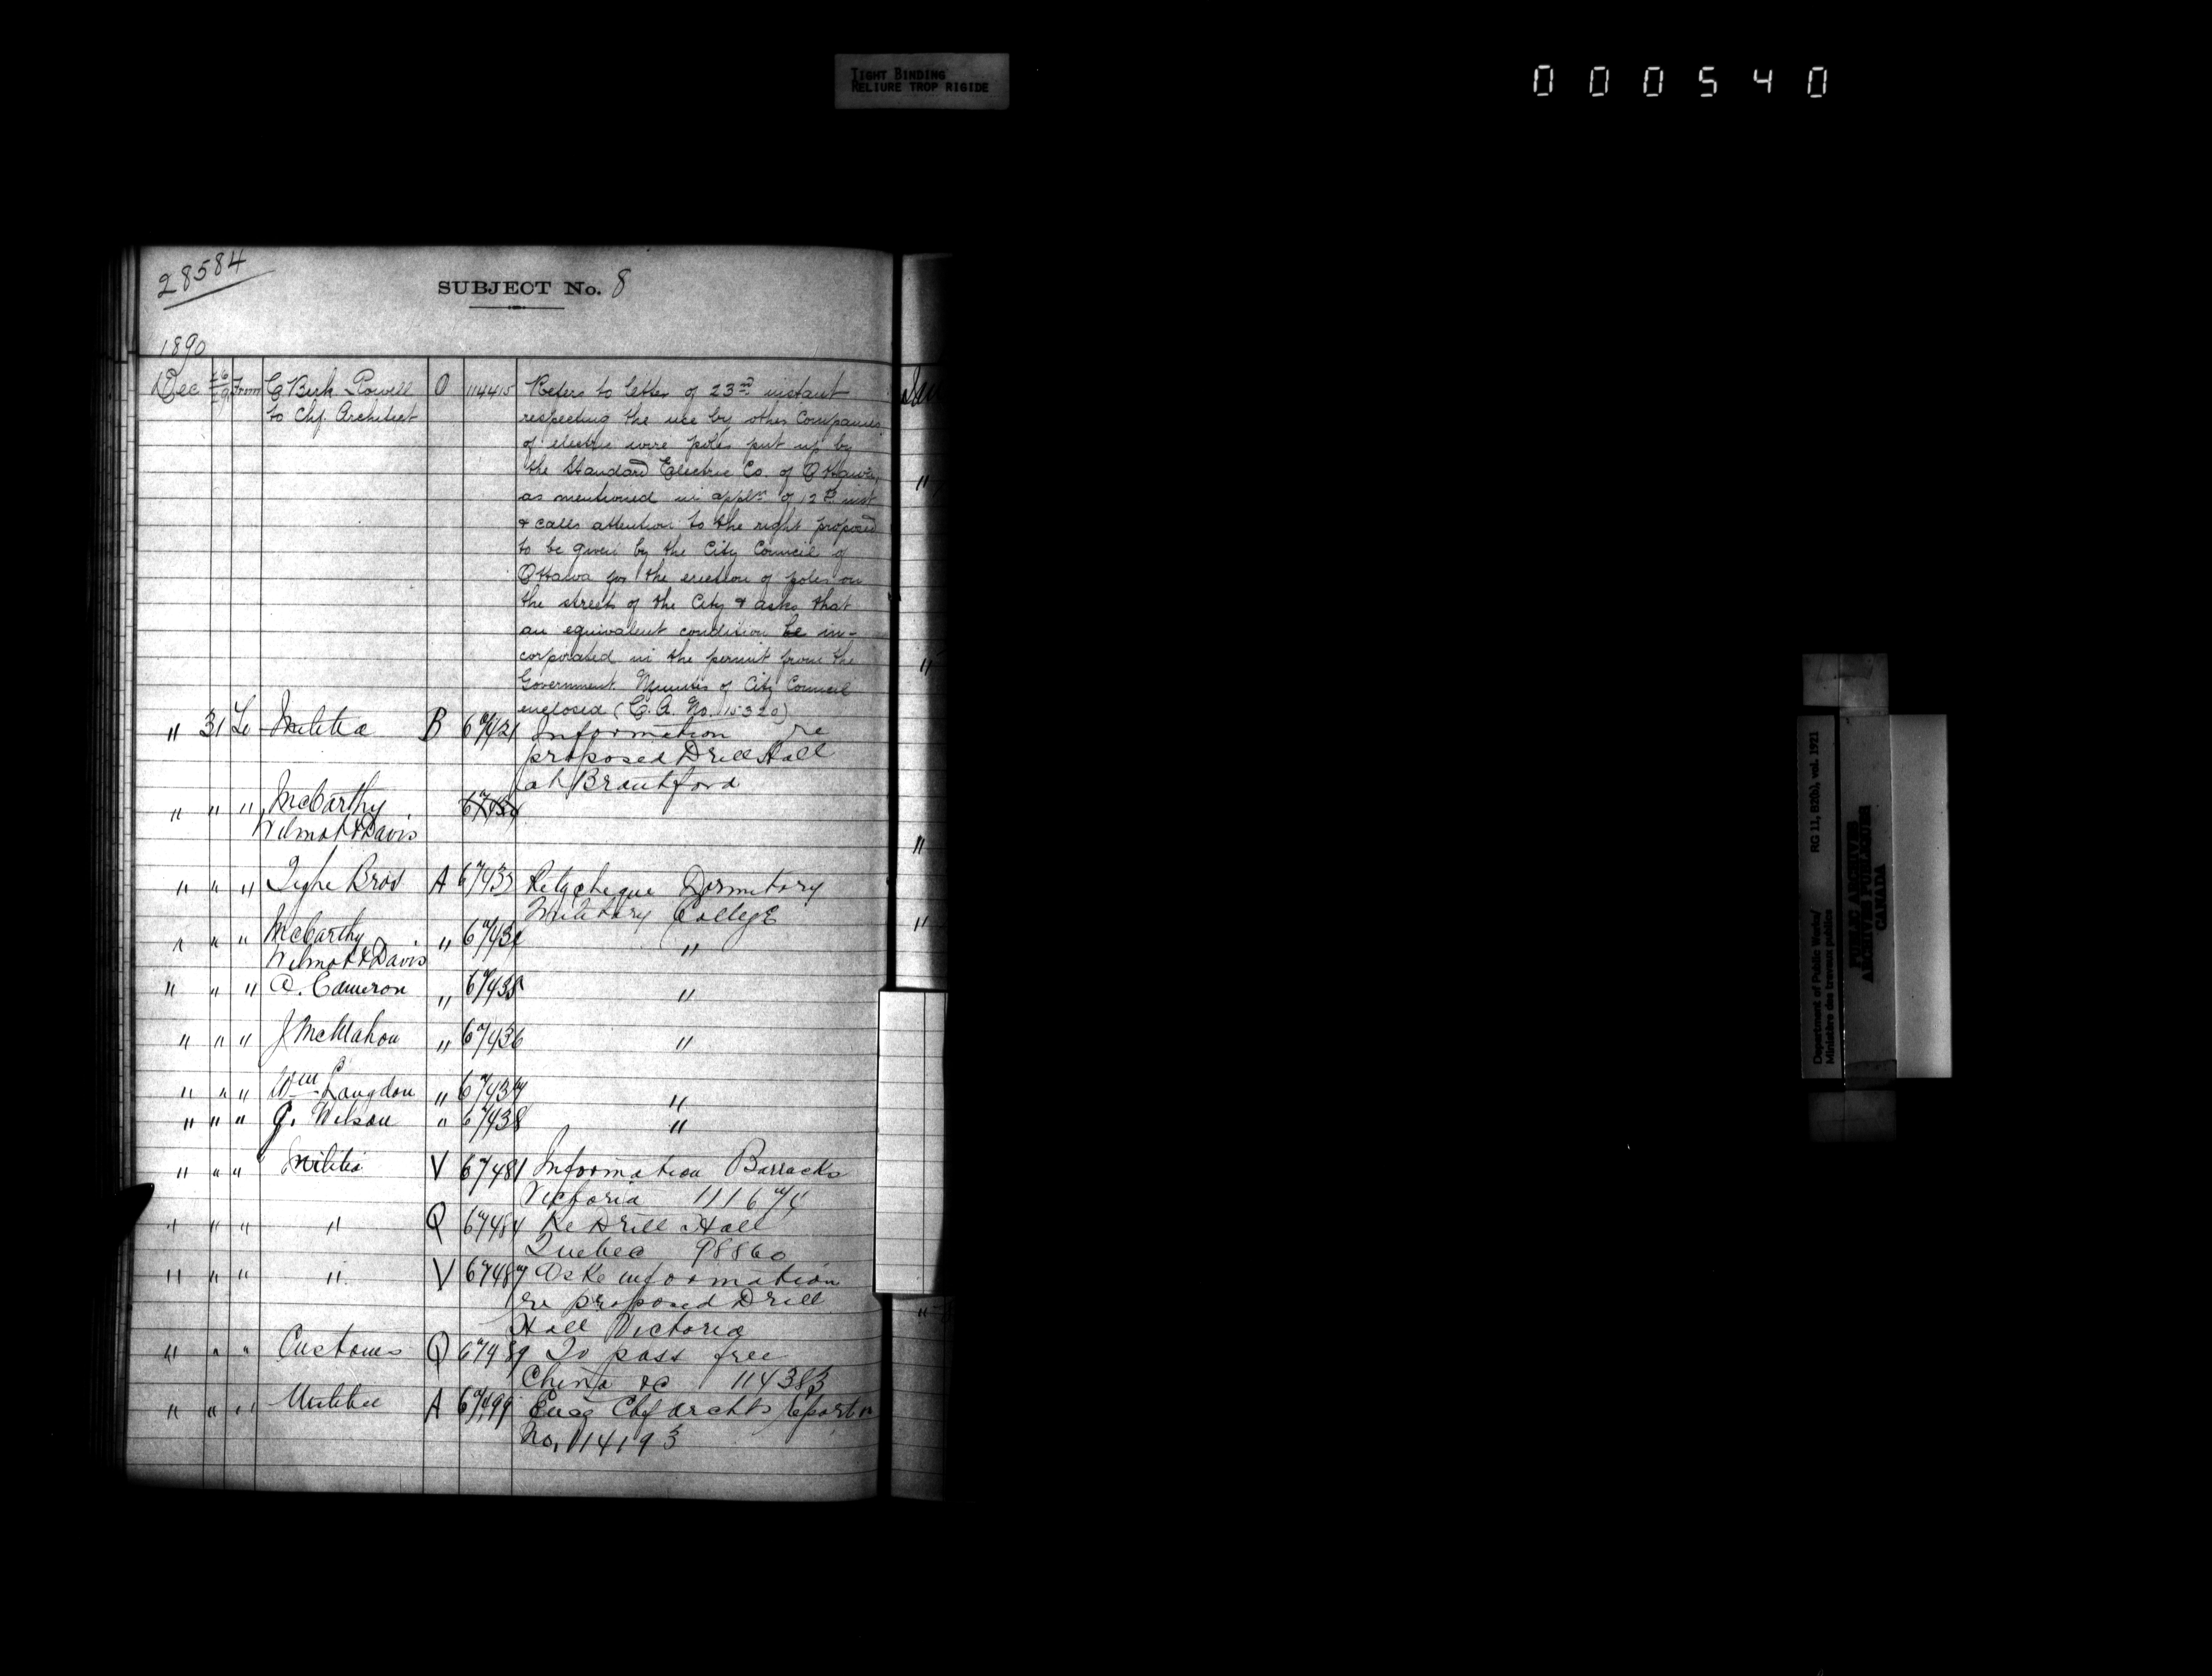 TIGHT BINDING
RELIURE TROP RIGIDE
000540
28584
SUBJECT No. 8
1890
Dec 26/29 From C Berk Powell O 114415 Refers to letter of 23rd instant
to Chf. Architect respecting the use by other Companies
of electric wire poles put up by
the Standard Electric Co. of Ottawa,
as mentioned in appln of 12th inst
& calls attention to the right proposed
to be given by the City Council of
Ottawa for the erection of poles on
the streets of the City & asks that
an equivalent condition be in-
corporated in the permit from the
Government. Minutes of City Council
enclosed (C. A. No. 15320)
" 31 To Militia B 67421 Information re
proposed Drill Hall
at Brantford
" " " McCarthy
Wilmot & Davis
" " " Tighe Bros A 67433 Retg cheque Dormitory
Military College
" " " McCarthy " 67434 "
Wilmot & Davis
" " " A. Cameron " 67435 "
" " " J McMahon " 67436 "
" " " Wm Langdon " 67437 "
" " " G. Wilson " 67438 "
" " " Militia V 67481 Information Barracks
Victoria 111674
" " " " Q 67484 Re Drill Hall
Quebec 98860
" " " " V 67487 Asks information
re proposed Drill
Hall Victoria
" " " Customs Q 67489 To pass free
China &c 114383
" " " Militia A 67499 Encg Chf Archts report on
No. 114193
Department of Public Works/
Ministère des travaux publics
RG 11, B2(b), vol. 1921
PUBLIC ARCHIVES
ARCHIVES PUBLIQUES
CANADA